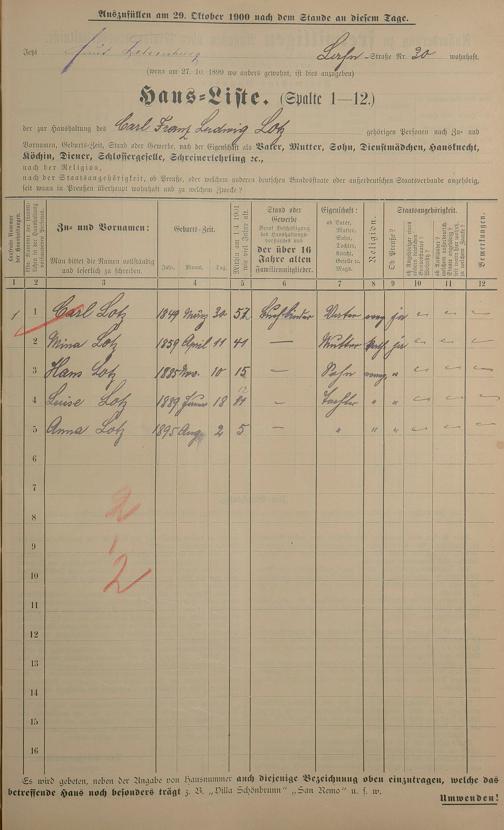 Auszufüllen am 29. Oktober 1900 nach dem Stande an diesem Tage.
Jetzt -Straße Nr. 30 wohnhaft.
(wenn am 27. 10. 1899 wo anders gewohnt, ist dies anzugeben)
Haus-Liste. (Spalte 1—12.)
der zur Haushaltung des Carl Franz Ludwig Lotz gehörigen Personen nach Zu- und
Vornamen, Geburts-Zeit, Stand oder Gewerbe, nach der Eigenschaft als Vater, Mutter, Sohn, Dienstmädchen, Hausknecht,
Köchin, Diener, Schlossergeselle, Schreinerlehrling &c.,
nach der Religion,
nach der Staatsangehörigkeit, ob Preuße, oder welchem anderen deutschen Bundesstaate oder außerdeutschen Staatsverbande angehörig,
seit wann in Preußen überhaupt wohnhaft und zu welchem Zwecke?
Zu- und Vornamen:
Man bittet die Namen vollständig und leserlich zu schreiben.
Geburts-Zeit.
Jahr. Monat. Tag.
Mithin am 1.4. 1901 wie viel Jahre alt.
Stand oder Gewerbe
der über 16 Jahre alten Familienmitglieder.
Eigenschaft:
ob Vater, Mutter, Sohn, Tochter, Knecht, Geselle u. Magd.
Religion.
Staatsangehörigkeit.
Ob Preuße?
Bemerkungen.
1 2 3 4 5 6 7 8 9 10 11 12
1 1 Carl Lotz 1849 März 30 51 Vater evg ja — — —
2 Mina Lotz 1859 April 11 41 — Mutter kath ja — — —
3 Hans Lotz 1885 Nov. 10 15 — Sohn evng " — — —
4 Luise Lotz 1889 Juni 18 11 — Tochter " " — — —
5 Anna Lotz 1895 Aug. 2 5 — " " " — — —
6
7
8
9
10
11
12
13
14
15
16
2
1
2
Es wird gebeten, neben der Angabe von Hausnummer auch diejenige Bezeichnung oben einzutragen, welche das
betreffende Haus noch besonders trägt z. B. „Villa Schönbrunn" „San Remo" u. s. w.
Umwenden!